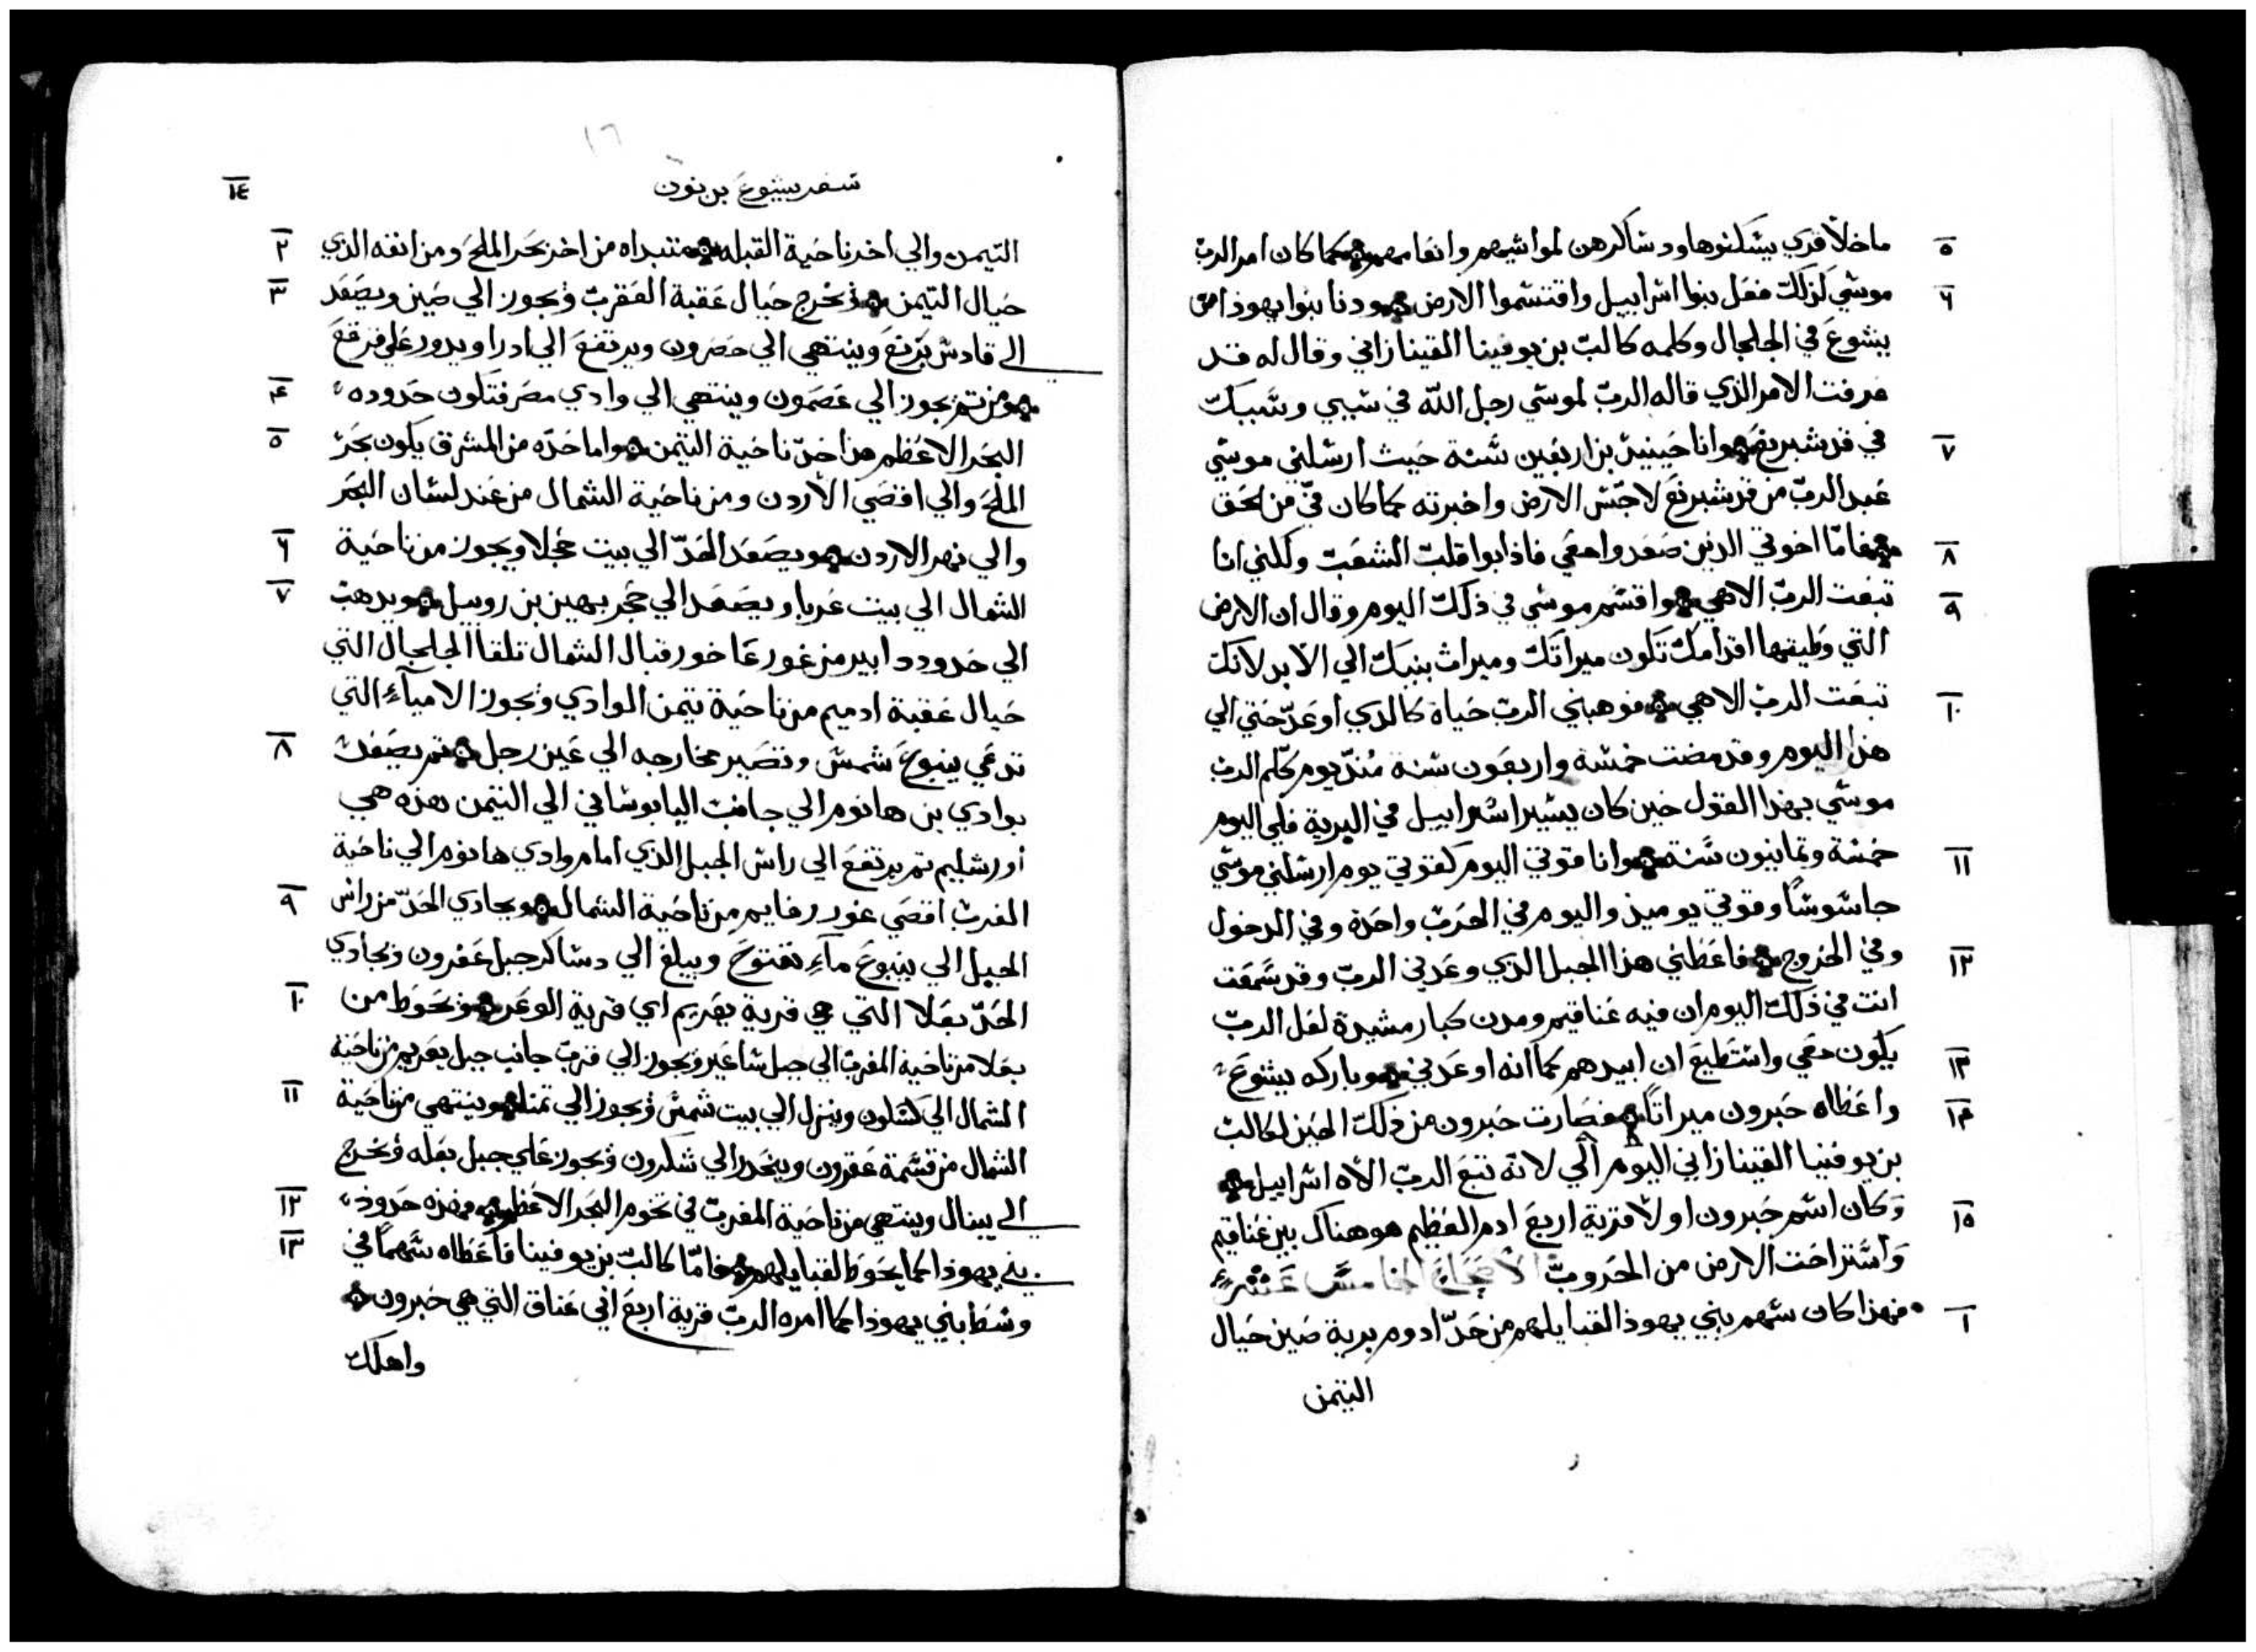 ما خلا قري يسكنوها ودساكرهن لمواشيهم وانعامهم كما كان امر الرب ٥
موسي كذلك فعل بنوا اسراييل واقتسموا الارض ودنا بنوا يهوذا من ٦
يشوع في الجلجال وكلمه كالب بن يوفينا القينازاني وقال له قد
عرفت الامر الذي قاله الرب لموسي رجل الله في سببي وسببك
في قدسبرنع وانا حينيذ بن اربعين سنة حيث ارسلني موسي ٧
عبد الرب من قدسبرنع لاجس الارض واخبرته كما كان في من الحق
فامّا اخوتي الذين صعدوا معي فاذابوا قلب الشعب وكلني انا ٨
تبعت الرب الاهي واقسم موسي في ذلك اليوم وقال ان الارض ٩
التي وطيتها اقدامك تكون ميراتك وميراث بنيك الي الابد لانك
تبعت الرب الاهي فوهبني الرب حياة كالذي اوعد حتي الي ١٠
هذا اليوم وقد مضت خمسة واربعون سنة منذ يوم كلم الرب
موسي بهذا القول حين كان يسير اسراييل في البرية فلي اليوم
خمسة وثمانيون سنة وانا قوتي اليوم كقوتي يوم ارسلني موسي ١١
جاسوسًا وقوتي يوميذ واليوم في الحرب واحدة وفي الدخول
وفي الخروج فاعطني هذا الجبل الذي وعدني الرب وقد سمعت ١٢
انت في ذلك اليوم ان فيه عناقيم ومدن كبار مشيدة لعل الرب
يكون معي واستطيع ان ابيدهم كما انه اوعدني وباركه يشوع ١٣
واعطاه حبرون ميراتًا فصارت حبرون من ذلك الحين لكالب ١٤
بن يوفينا القينازاني اليوم الي لانه تتبع الرب الاه اسراييل
وكان اسم حبرون اولا قرية اربع ادم العظيم هو هناك بين عناقيم ١٥
واستراحت الارض من الحروب الاصحاح الخامس عشر
فهذا كان سهم بني يهوذا لقبايلهم من حد ادوم برية صين حيال ١
التيمن
سفر يشوع بن نون ١٤
التيمن والي اخر ناحية القبله متبداه من اخر بحر الملح ومن انفه الذي ٢
حيال التيمن وتخرج حيال عقبة العقرب وتجوز الي صين ويصعد ٣
الي قادس برنع وينتهي الي حصرون ويرتفع الي ادرا ويدور علي قرقع
ومن تم يجوز الي عصمون وينتهي الي وادي مصر فتكون حدوده ٤
البحر الاعظم هذا حد ناحية التيمن واما حدّه من المشرق يكون بحر ٥
الملح والي اقصي الأردن ومن ناحية الشمال من عند لسان البحر
والي نهر الاردن ويصعد الحدّ الي بيت حجلا ويجوز من ناحية ٦
الشمال الي بيت عربا ويصعد الي حجر بهين بن روبيل ويذهب ٧
الي حدود دابير من غور عاخور قبال الشمال تلقا الجلجال التي
حيال عقبة ادميم من ناحية تيمن الوادي وتجوز الامياء التي
تدعي ينبوع شمس وتصير مخارجه الي عين رجل تم يصعد ٨
بوادي بن هانوم الي جانب اليابوساني الي التيمن هذه هي
اورشليم تم يرتفع الي راس الجبل الذي امام وادي هانوم الي ناحية
المغرب اقصي غور رفايم من ناحية الشمال ويحادي الحدّ من راس ٩
الجبل الي ينبوع ماء تفتوح ويبلغ الي دساكر جبل عفرون وتحادي
الحدّ بعلا التي هي قرية يعريم اي قرية الوعر وتحوط من ١٠
بعلا من ناحية المغرب الي جبل ساعير وتجوز الي قرب جانب جبل يعريم من ناحية
الشمال الي كسلون وينزل الي بيت شمس وتجوز الي تمنا وينتهي من ناحية ١١
الشمال من قسمة عقرون وينحدر الي شكرون وتجوز علي جبل بعله وتخرج
الي يبنال وينتهي من ناحية المغرب في تخوم البحر الاعظم فهذه حدود ١٢
بني يهوذا كما يحوط لقبايلهم فامّا كالب بن يوفينا فاعطاه سهمًا في ١٣
وسط بني يهوذا كما امره الرب قرية اربع ابي عناق التي هي حبرون
واهلك